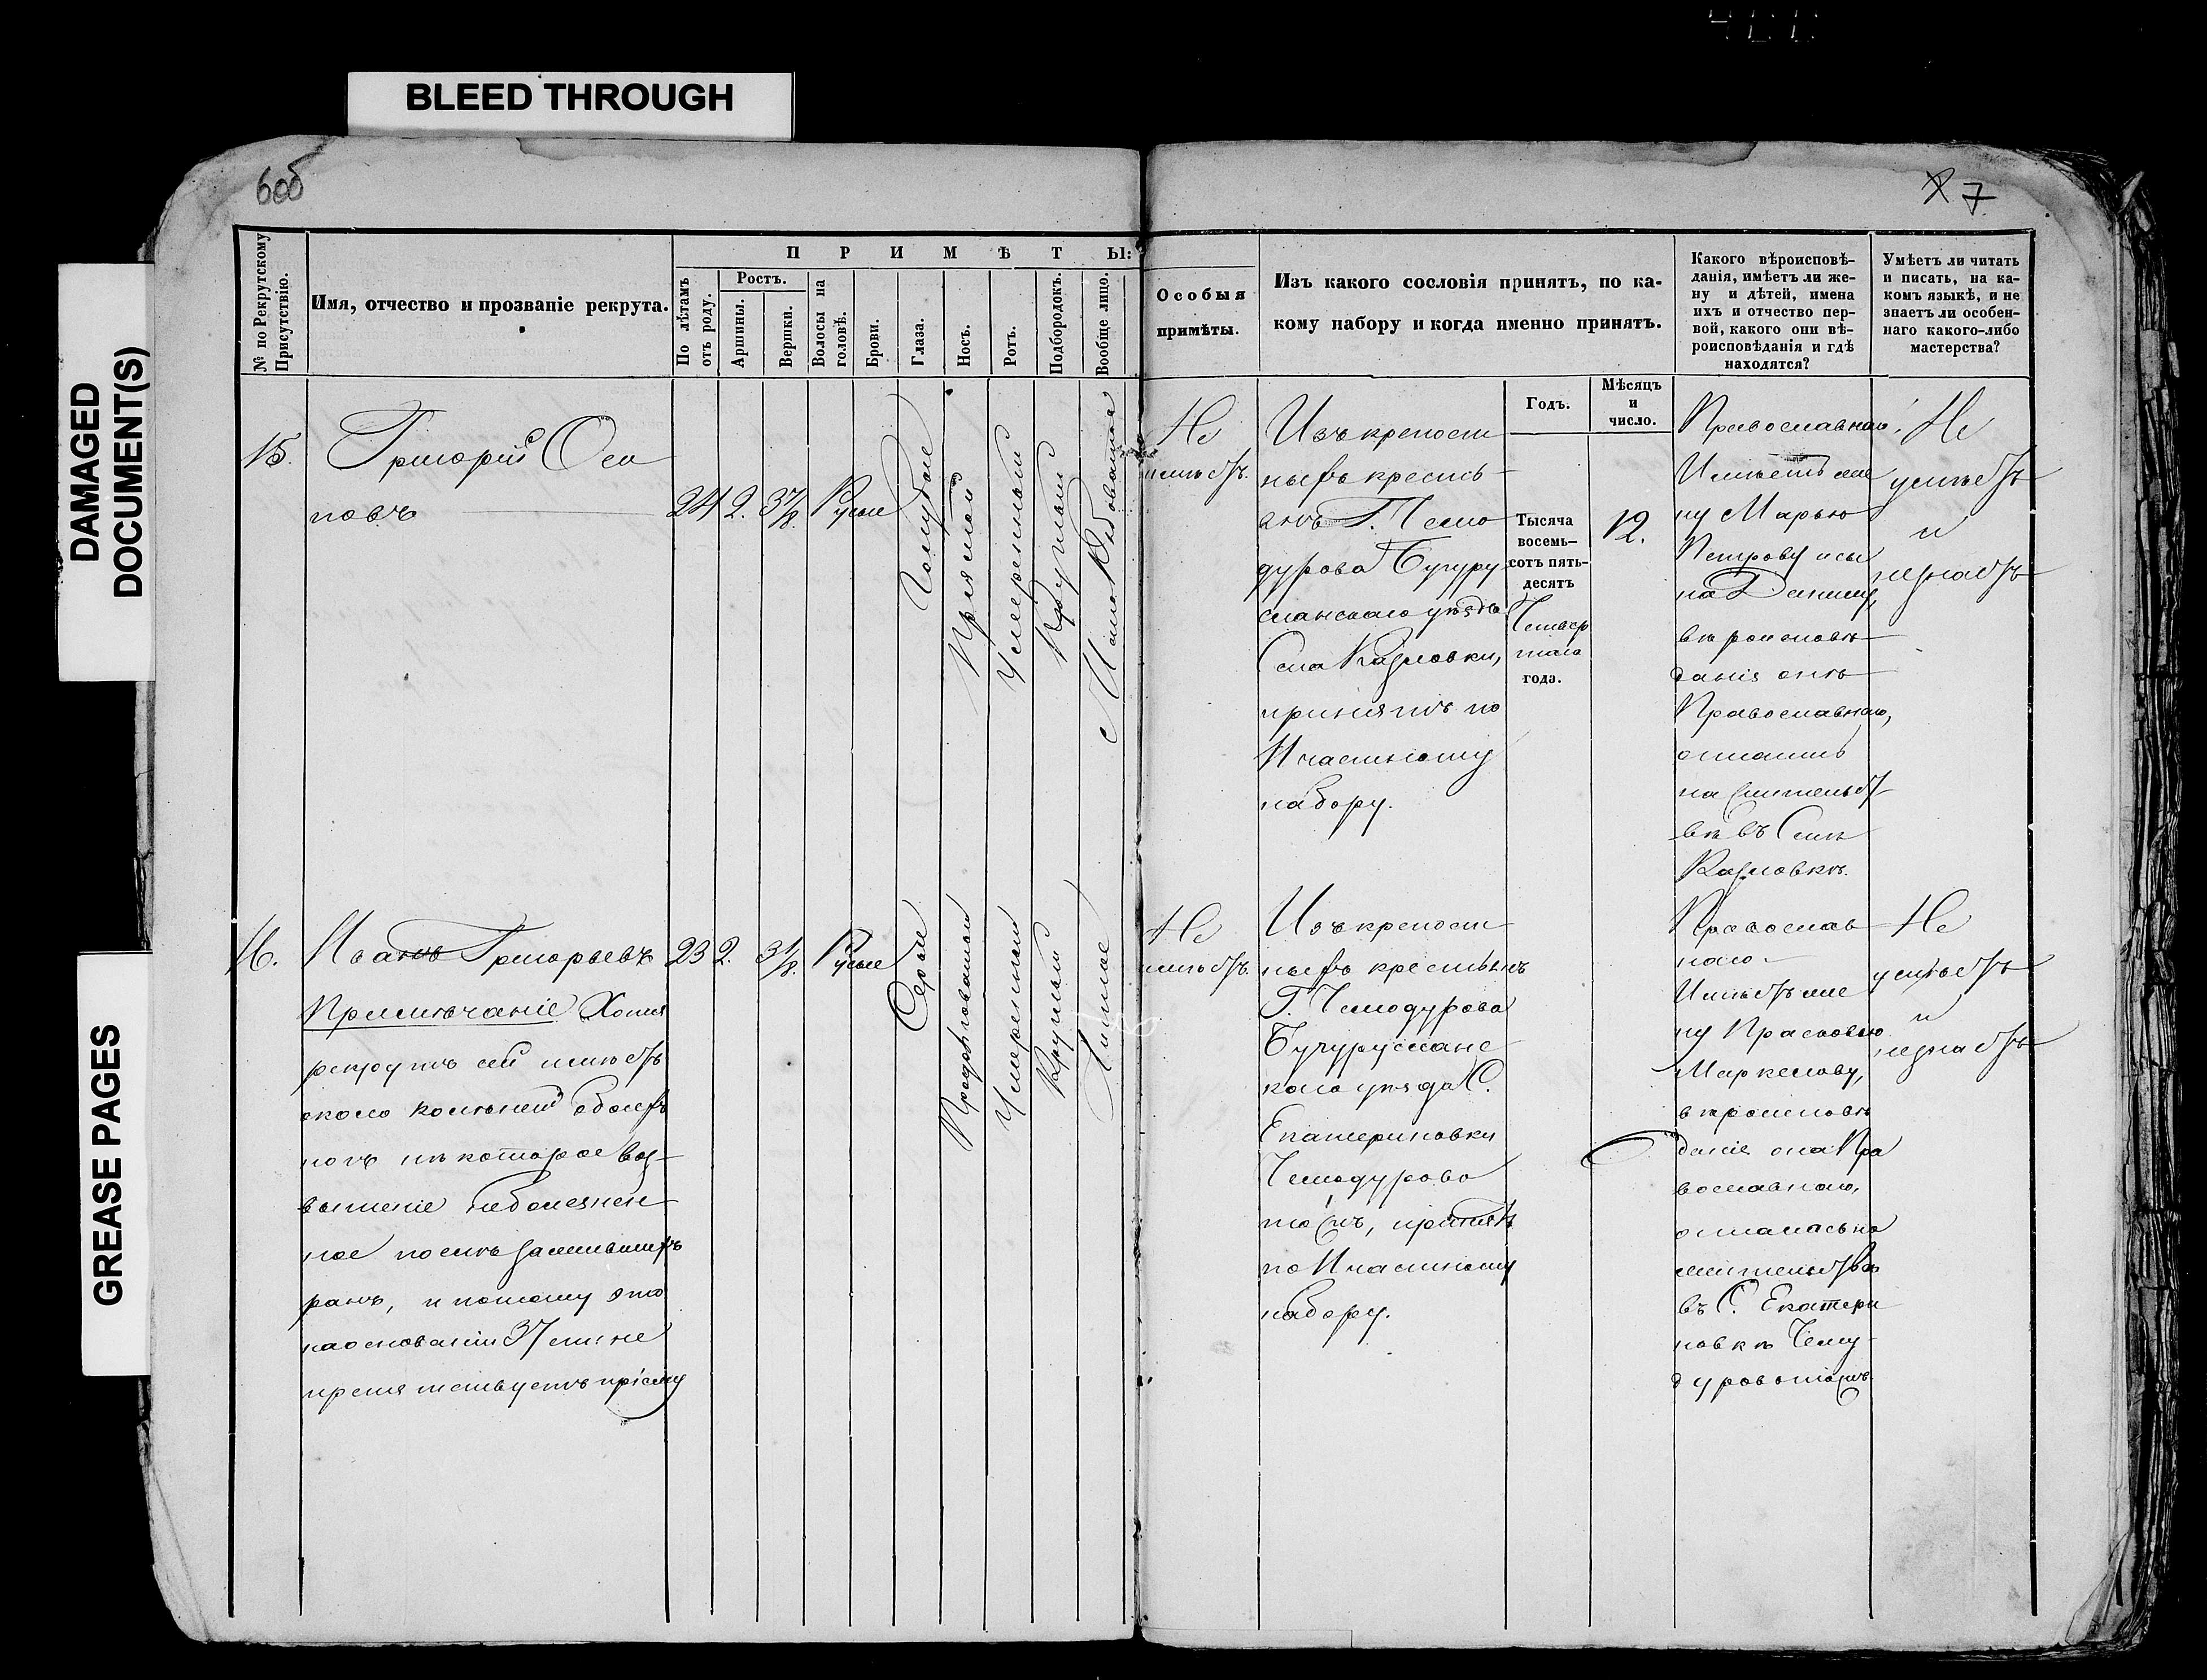 BLEED THROUGH
DAMAGED
DOCUMENT(S)
GREASE PAGES
6об
7
№ по Рекрутскому
Присутствію.
Имя, отчество и прозваніе рекрута.
ПРИМѢТЫ:
По лѣтамъ
отъ роду.
Ростъ.
Аршины.
Вершки.
Волосы на
головѣ.
Брови.
Глаза.
Носъ.
Ротъ.
Подбородокъ.
Вообще лицо.
Особыя
примѣты.
Изъ какого сословія принятъ, по ка-
кому набору и когда именно принятъ.
Годъ.
Мѣсяцъ
и
число.
Какого вѣроисповѣ-
данія, имѣетъ ли же-
ну и дѣтей, имена
ихъ и отчество пер-
вой, какого они вѣ-
роисповѣданія и гдѣ
находятся?
Умѣетъ ли читать
и писать, на ка-
комъ языкѣ, и не
знаетъ ли особен-
наго какого-либо
мастерства?
15.
Григорій Оси
повъ
24
2.
3 7/8.
Русые
Голубые
Прямой
Умеренный
Круглый
Не
имѣетъ.
Изъ крепост
ныхъ кресть
янъ Г. Чемо
дурова Бугуру
сланскаго уѣзда
Села Козловки,
принятъ по
И частному
набору.
Тысяча
восемь-
сотъ пять-
десятъ
Четвер
таго
года.
12.
Православнаго.
Имѣетъ же
ну Марью
Петрову и сы
на Данилу,
вѣроисповѣ
данія они
Православнаго,
остались
на жительст
вѣ въ Селѣ
Козловкѣ.
Не
умѣетъ
и
незнаетъ
16.
Иванъ Григорьевъ
Примѣчаніе Хотя
рекрутъ сей имѣетъ
около коленей обоихъ
ногъ нѣкоторое воз-
вышеніе неболезнен
ное послѣ зажившихъ
ранъ, и потому это
на основаніи 37 ст. не
препятствуетъ пріему
23
2.
3 1/8.
Русые
Серые
Продолговатый
Умеренный
Круглый
Чистое
Не
имѣетъ.
Изъ крепост
ныхъ крестьянъ
Г. Чемодурова
Бугурусланс
каго уѣзда С.
Екатериновки
Чемодурово
тожъ, принятъ
по И частному
набору.
Православ
наго.
Имѣетъ же
ну Прасковью
Маркелову,
вѣроисповѣ
данія она Пра
вославнаго,
осталась на
жительствѣ
въ С. Екатери
новкѣ Чему-
дурово тожъ.
Не
умѣетъ
и
незнаетъ